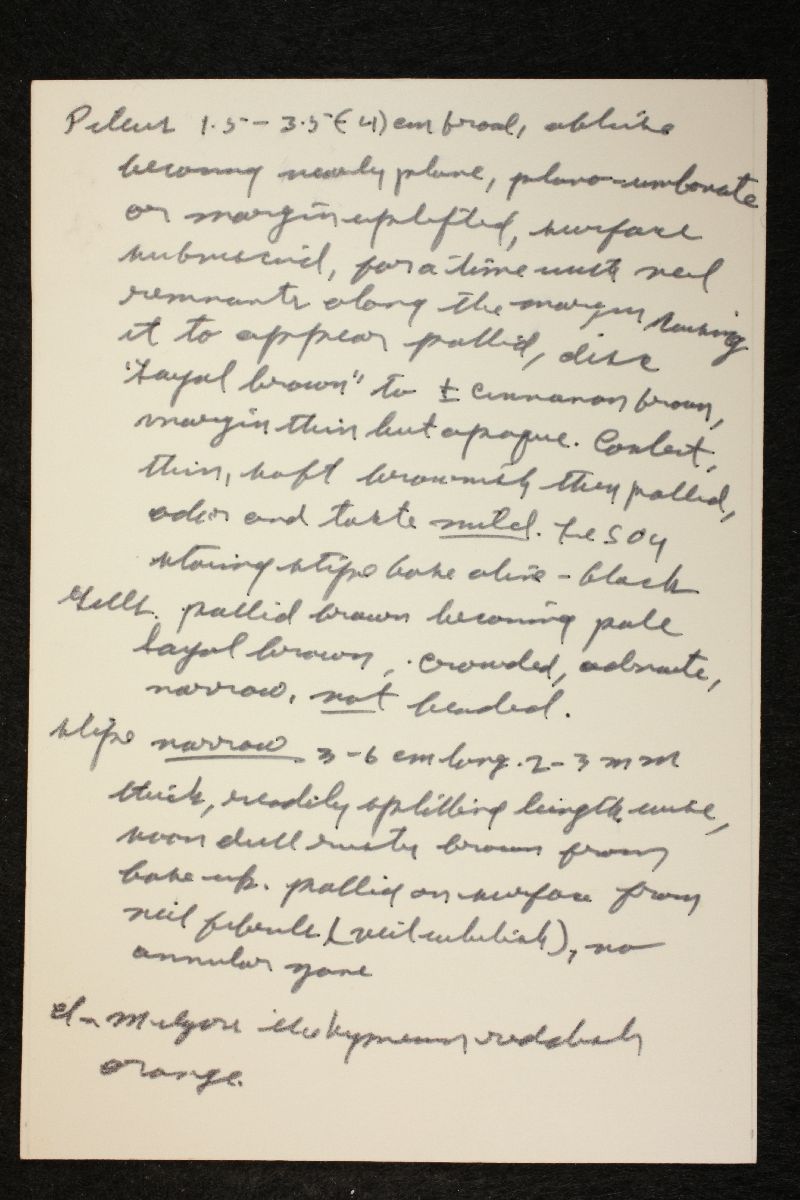 Pileus 1.5-3.5(-4) cm broad, obtuse
becoming nearly plane, plano-umbonate
or margin uplifted, surface
subviscid, for a time with veil
remnants along the margin causing
it to appear pallid, disc
"Sayal brown" to ± cinnamon brown,
margin thin but opaque. Context,
thin, soft brownish then pallid,
odor and taste mild. FeSO4
staining stipe base olive-black
Gills. pallid brown becoming pale
sayal brown, crowded, adnate,
narrow, not beaded.
Stipe narrow 3-6 cm long. 2-3 mm
thick, readily splitting lengthwise,
soon dull rusty brown from
base up. pallid on surface from
veil fibrils (veil whitish), no
annular zone
In Melzers the hymenium reddish
orange.